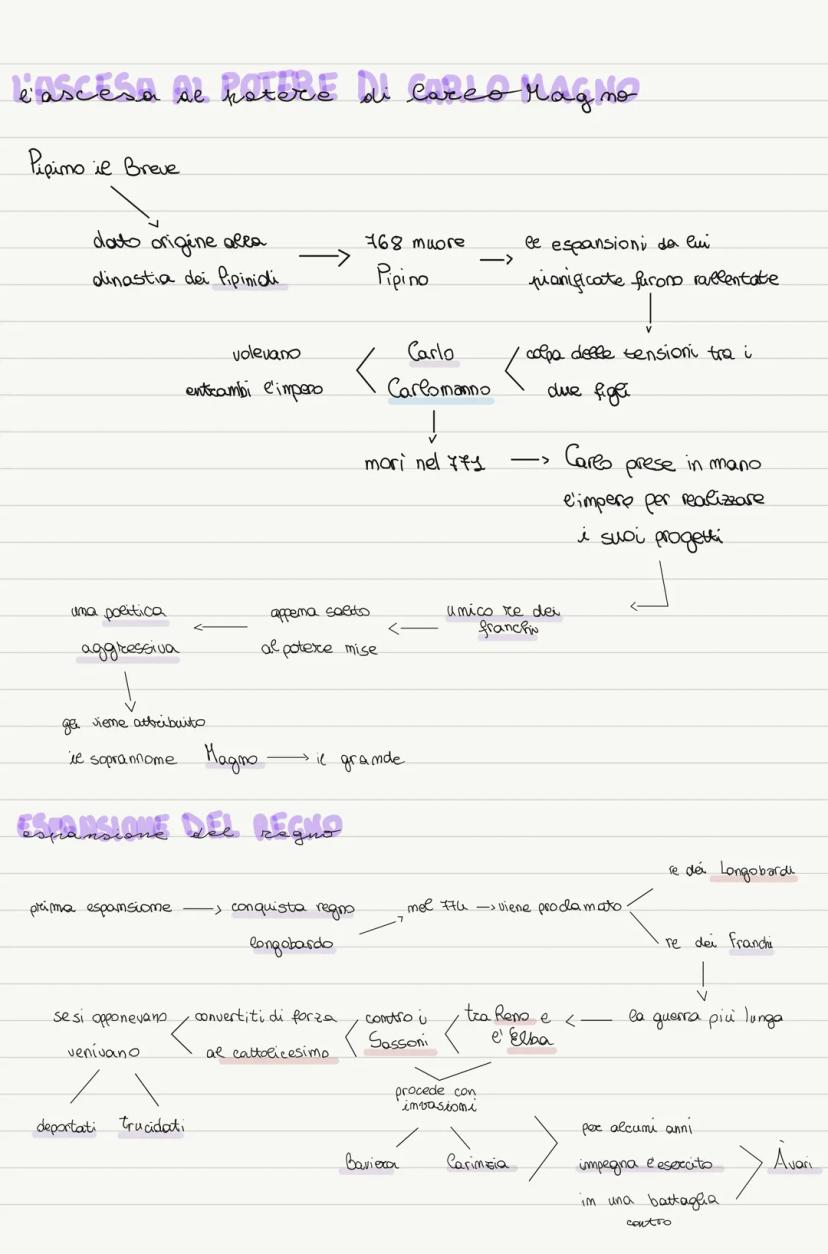 L'ASCESA AL POTERE DI CARLO MAGNO
l'ascesa al potere di Carlo Magno
Pipino il Breve
dato origine alla
dinastia dei Pipinidi
768 muore
Pipino
le espansioni da lui
pianificate furono rallentate
colpa delle tensioni tra i
due figli
Carlo
Carlomanno
volevano
entrambi l'impero
morì nel 771
Carlo prese in mano
l'impero per realizzare
i suoi progetti
unico re dei
franchi
appena salito
al potere mise
una politica
aggressiva
gli viene attribuito
il soprannome Magno il grande
ESPANSIONE DEL REGNO
espansione del regno
prima espansione
conquista regno
longobardo
nel 774
viene proclamato
re dei Longobardi
re dei Franchi
la guerra più lunga
tra Reno e
l'Elba
contro i
Sassoni
convertiti di forza
al cattolicesimo
se si opponevano
venivano
deportati
trucidati
procede con
invasioni
Baviera
Carinzia
per alcuni anni
impegna l'esercito
in una battaglia
contro
Àvari